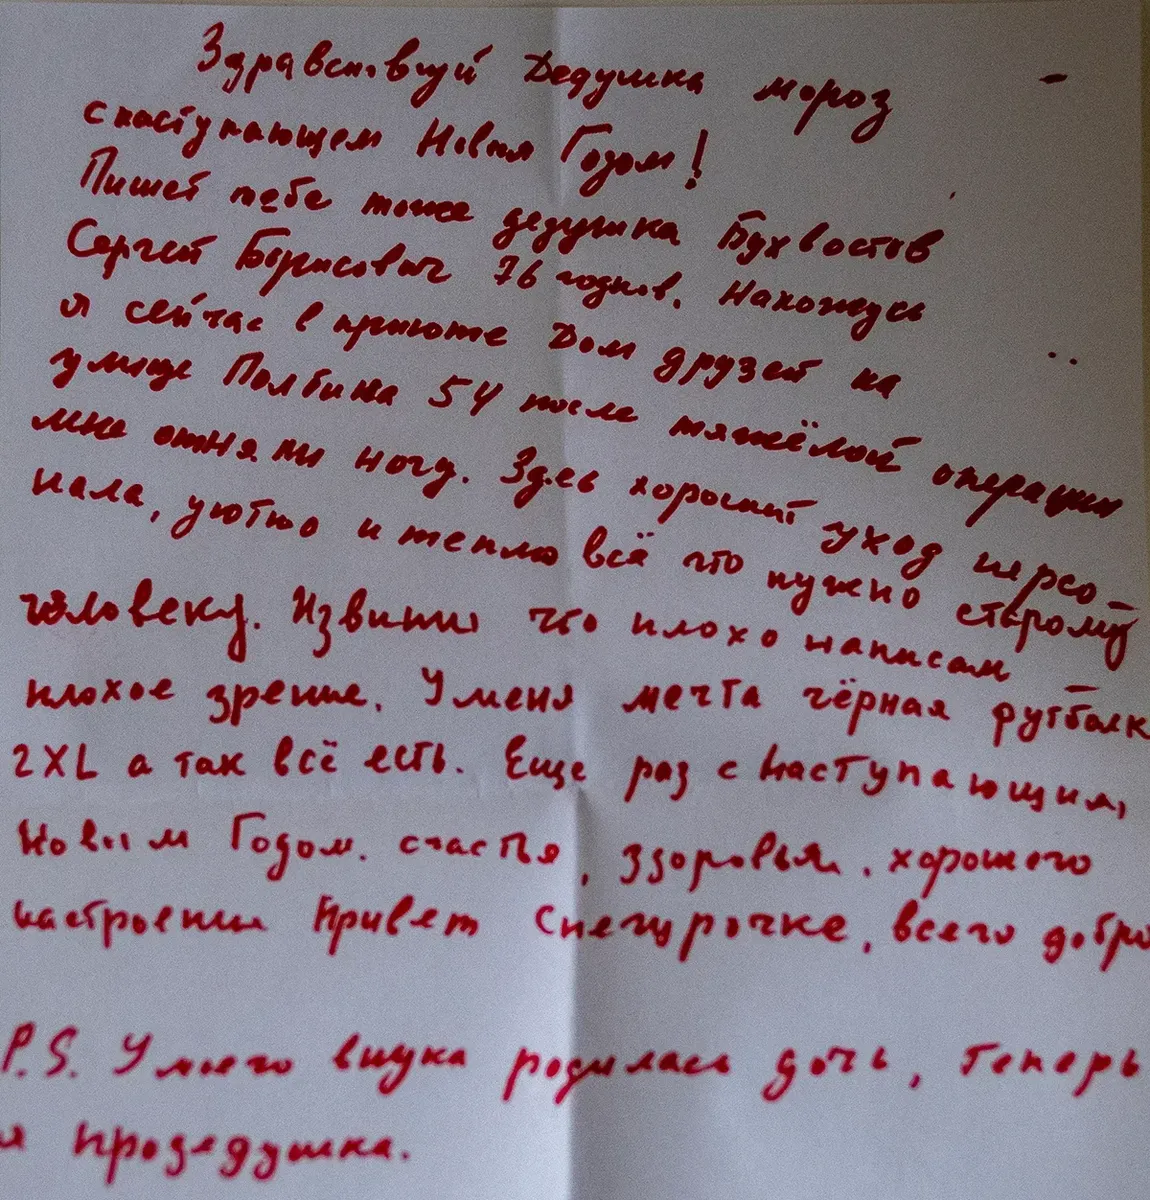 Здравствуй Дедушка мороз
с наступающем Новым Годом!
Пишет тебе тоже дедушка Бухвостов
Сергей Борисович 76 годков. Нахожусь
я сейчас в приюте Дом друзей на
улице Полбина 54 после тяжёлой операции
мне отняли ногу. Здесь хороший уход персо-
нала, уютно и тепло всё что нужно старому
человеку. Извини что плохо написал
плохое зрение. У меня мечта чёрная футболк
2XL а так всё есть. Ещё раз с наступающим,
Новым Годом. счастья, здоровья, хорошего
настроения Привет Снегурочке, всего добро
P.S. У моего внука родилась дочь, теперь
я прадедушка.